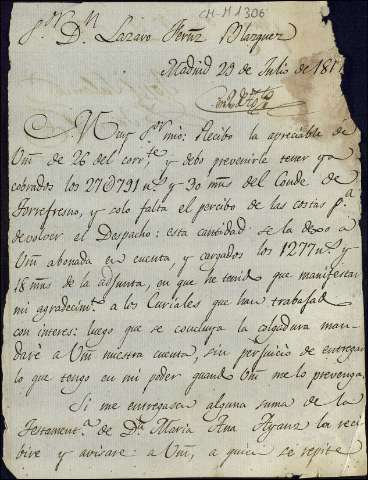 CM-M1306
D.n Lazaro Fern.z Blazquez
Madrid 29 de Julio de 181
Muy S.or mio: Recibo la apreciable de
Vm de 26 del corr.te y debo prevenirle tener ya
cobrados los 27@791 r.s y 30 mrs del Conde de
Torrefresno, y solo falta el percibo de las costas p.a
devolver el Despacho: esta cantidad se la dexo a
Vm abonada en cuenta, y cargados los 1277 r.s y
18 mrs de la adjunta, en que he tenido que manifestar
mi agradecim.to a los Curiales que han trabajado
con interes: luego que se concluya la colgadura man-
daré a Vm nuestra cuenta, sin perjuicio de entregar
lo que tengo en mi poder quando Vm me lo prevenga.
Si me entregasen alguna suma de la
Testament.a de D.a Maria Ana Ayanz la reci-
bire y avisare: a Vm, a quien se repite